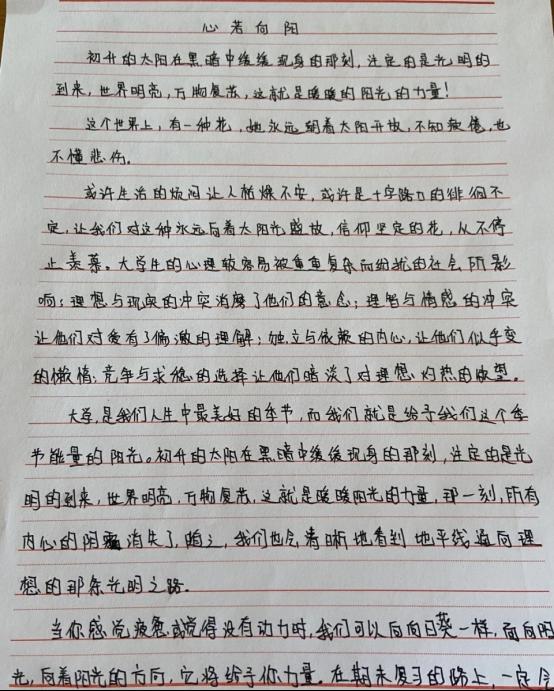 心若向阳
初升的太阳在黑暗中缓缓现身的那刻，注定的是光明的
到来，世界明亮，万物复苏，这就是暖暖的阳光的力量！
这个世界上，有一种花，她永远朝着太阳开放，不知疲倦，也
不懂悲伤。
或许生活的烦闷让人枯燥不安，或许是十字路口的徘徊不
定，让我们对这种永远向着太阳光盛放，信仰坚定的花，从不停
止羡慕。大学生的心理较容易被重重复杂而纷扰的社会所影
响：理想与现实的冲突消磨了他们的意念；理智与情感的冲突
让他们对爱有了偏激的理解；独立与依赖的内心，让他们似乎变
的懒惰；竞争与求稳的选择让他们暗淡了对理想灼热的欲望。
大学，是我们人生中最美好的季节，而我们就是给予我们这个季
节能量的阳光。初升的太阳在黑暗中缓缓现身的那刻，注定的是光
明的到来，世界明亮，万物复苏，这就是暖暖阳光的力量，那一刻，所有
内心的阴霾消失了，随之，我们也会清晰地看到地平线通向理
想的那条光明之路。
当你感觉疲惫或觉得没有动力时，我们可以向向日葵一样，面向阳
光，向着阳光的方向，它将给予你力量。在期末复习的路上，一定会